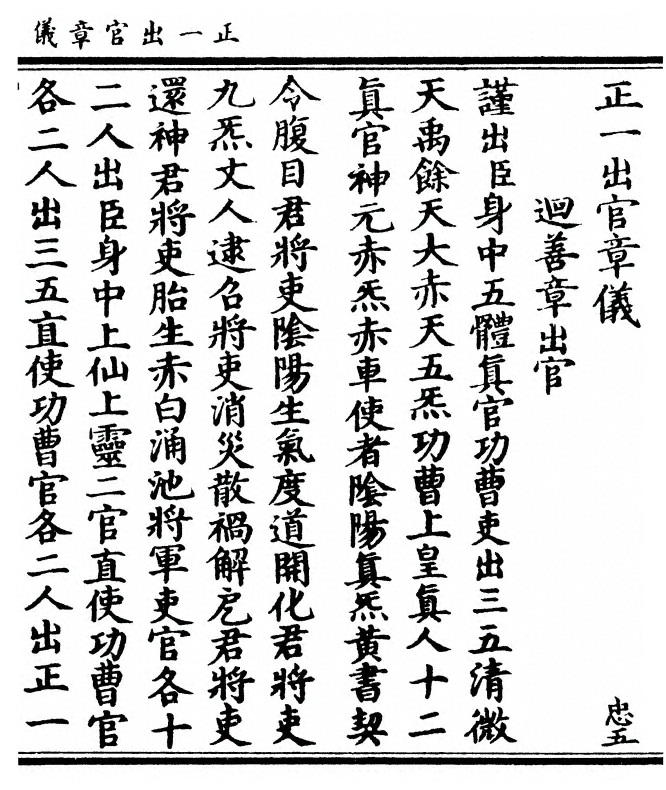 正一出官章儀
正一出官章儀
忠五
迴善章出官
謹出臣身中五體真官功曹吏出三五清微
天禹餘天大赤天五炁功曹上皇真人十二
真官神元赤炁赤車使者陰陽真炁黃書契
令腹目君將吏陰陽生氣度道開化君將吏
九炁丈人逮召將吏消災散禍解厄君將吏
還神君將吏胎生赤白涌池將軍吏官各十
二人出臣身中上仙上靈二官直使功曹官
各二人出三五直使功曹官各二人出正一